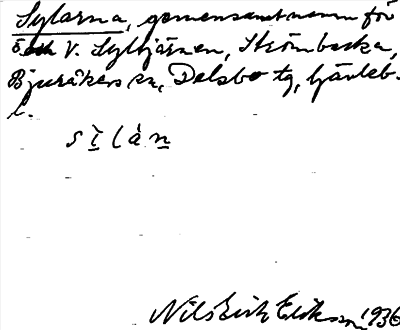 Sylarna, gemensamt namn för
Ö. och V. Syltjärnen, Strömbacka,
Bjuråkers sn, Delsbo tg, Gävleb.
l.
sìlàn
Nils Erik Eriksson 1936